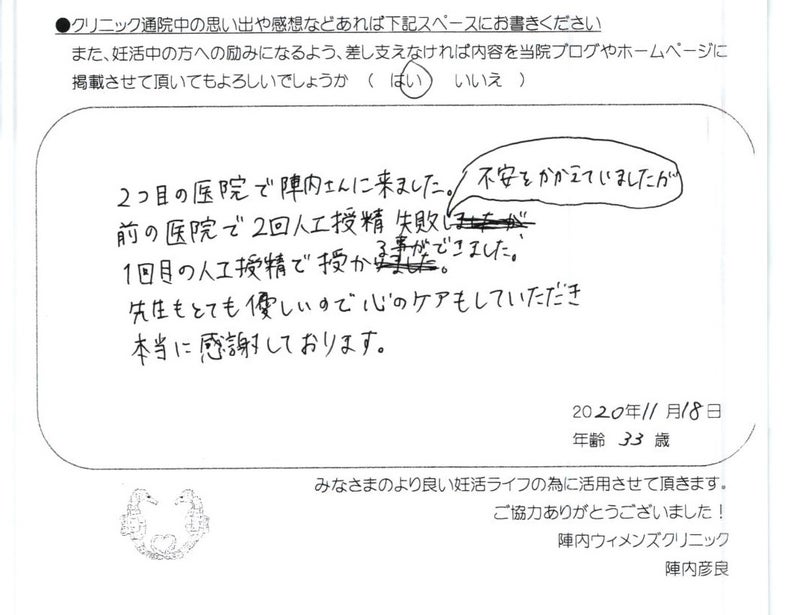 ●クリニック通院中の思い出や感想などあれば下記スペースにお書きください
また、妊活中の方への励みになるよう、差し支えなければ内容を当院ブログやホームページに
掲載させて頂いてもよろしいでしょうか ( はい いいえ )
2つ目の医院で陣内さんに来ました。
不安をかかえていましたが
前の医院で2回人工授精 失敗しましたが
1回目の人工授精で授かる事ができました。
先生もとても優しいので心のケアもしていただき
本当に感謝しております。
2020年11月18日
年齢 33 歳
みなさまのより良い妊活ライフの為に活用させて頂きます。
ご協力ありがとうございました!
陣内ウィメンズクリニック
陣内彦良